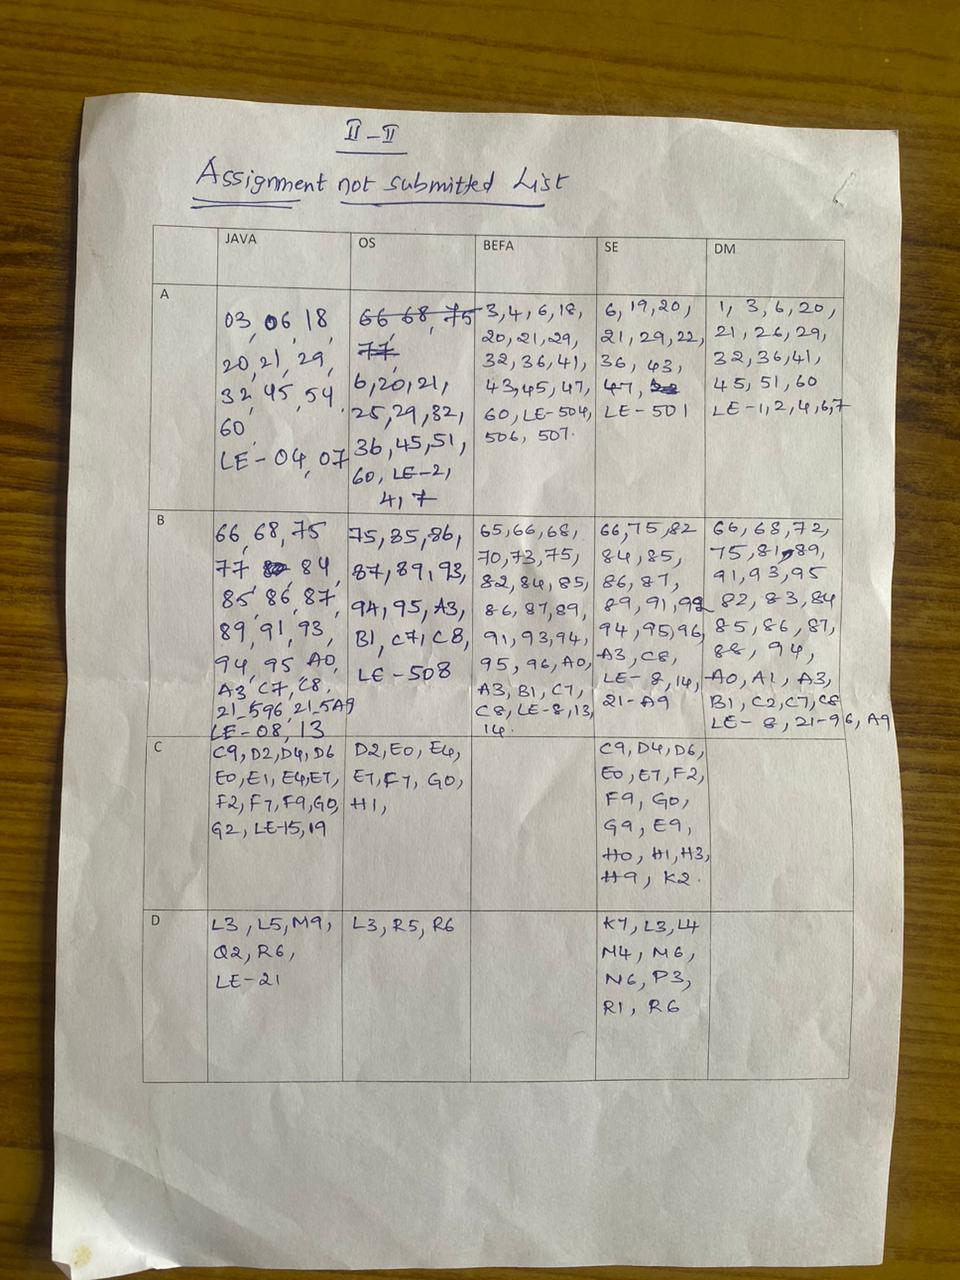 II-II
Assignment not submitted List
JAVA OS BEFA SE DM
A
03, 06, 18,
20, 21, 29,
32, 45, 54,
60,
LE-04, 07
66, 68, 75
77,
6, 20, 21,
25, 29, 32,
36, 45, 51,
60, LE-2,
4, 7
3, 4, 6, 18,
20, 21, 29,
32, 36, 41,
43, 45, 47,
60, LE-504,
506, 507.
6, 19, 20,
21, 29, 22,
36, 43,
47,
LE-501
1, 3, 6, 20,
21, 26, 29,
32, 36, 41,
45, 51, 60
LE-1, 2, 4, 6, 7
B
66, 68, 75
77, 84,
85, 86, 87,
89, 91, 93,
94, 95, A0,
A3, C7, C8,
21_596, 21_5A9
LE-08, 13
75, 85, 86,
87, 89, 93,
94, 95, A3,
B1, C7, C8,
LE-508
65, 66, 68,
70, 73, 75,
82, 84, 85,
86, 87, 89,
91, 93, 94,
95, 96, A0,
A3, B1, C7,
C8, LE-8, 13,
14.
66, 75, 82
84, 85,
86, 87,
89, 91,
94, 95, 96,
A3, C8,
LE-8, 14,
21-A9
66, 68, 72,
75, 81, 89,
91, 93, 95
82, 83, 84
85, 86, 87,
88, 94,
A0, A1, A3,
B1, C2, C7, C8
LE-8, 21-96, A9
C
C9, D2, D4, D6
E0, E1, E4, E7,
F2, F7, F9, G0,
G2, LE-15, 19
D2, E0, E4,
E7, F7, G0,
H1,
C9, D4, D6,
E0, E7, F2,
F9, G0,
G9, E9,
H0, H1, H3,
H9, K2.
D
L3, L5, M9,
Q2, R6,
LE-21
L3, R5, R6
K7, L3, L4
M4, M6,
N6, P3,
R1, R6